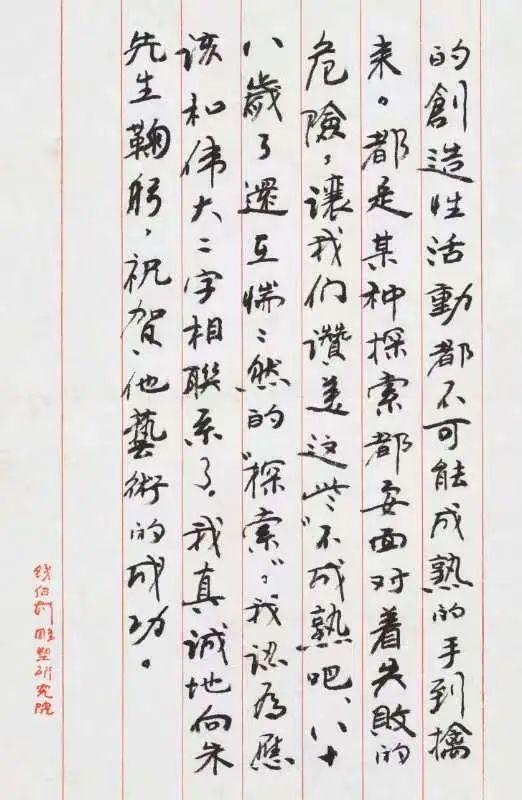 的創造性活動都不可能成熟的手到擒
来。都是某种探索都要面对着失敗的
危險，讓我们讚美这些"不成熟吧、八十
八歲了還在惴〻然的"探索"，我認為應
该和伟大二字相聯系了。我真誠地向朱
先生鞠躬，祝贺、他藝術的成功。
钱绍武雕塑研究院